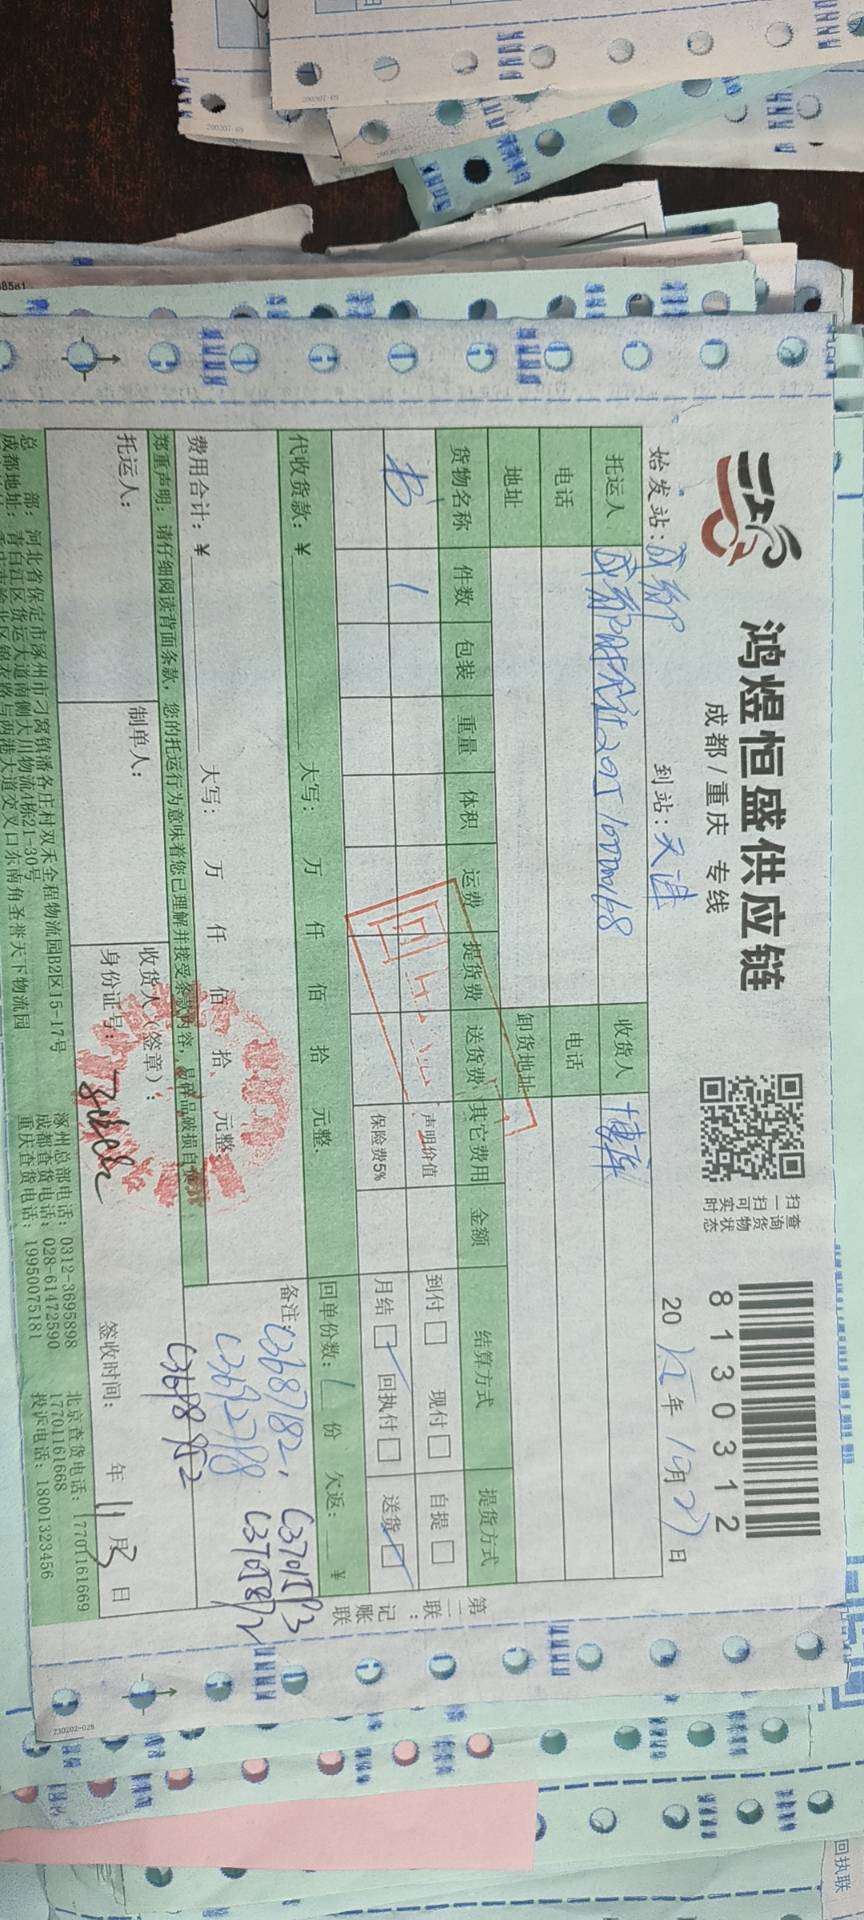 鸿煜恒盛供应链
成都/重庆 专线
扫一扫可实时
查询货物状态
8130312
始发站：成都 到站：天津 20 年10月27日
托运人 收货人 博库
电话 电话
地址 卸货地址
货物名称 件数 包装 重量 体积 运费 提货费 送货费 其它费用 金额 结算方式 提货方式
书 1 声明价值 到付 □ 现付 □ 自提 □
保险费5% 月结 □ 回执付 □ 送货 □
代收货款：¥ 大写： 万 仟 佰 拾 元整 回单份数：1 份 欠返： ¥
费用合计：¥ 大写： 万 仟 佰 拾 元整
备注：C3687182、C3701513
C3692788 C3705812
C3698952
郑重声明：请仔细阅读背面条款，您的托运行为意味着您已理解并接受条款内容，易碎品破损自
托运人： 制单人： 收货人（签章）：
身份证号： 签收时间： 年11月3日
总 部：河北省保定市涿州市刁窝镇潘各庄村双禾全程物流园B2区15-17号 涿州总部电话：0312-3695898 北京查货电话：17701161669
成都地址：青白江区货运大道南侧大川物流4栋21-30号 成都查货电话：028-61472590 17701161668
重庆查货电话：19950075181 投诉电话：18001323456
第二联：记账联
230202-028
回执联